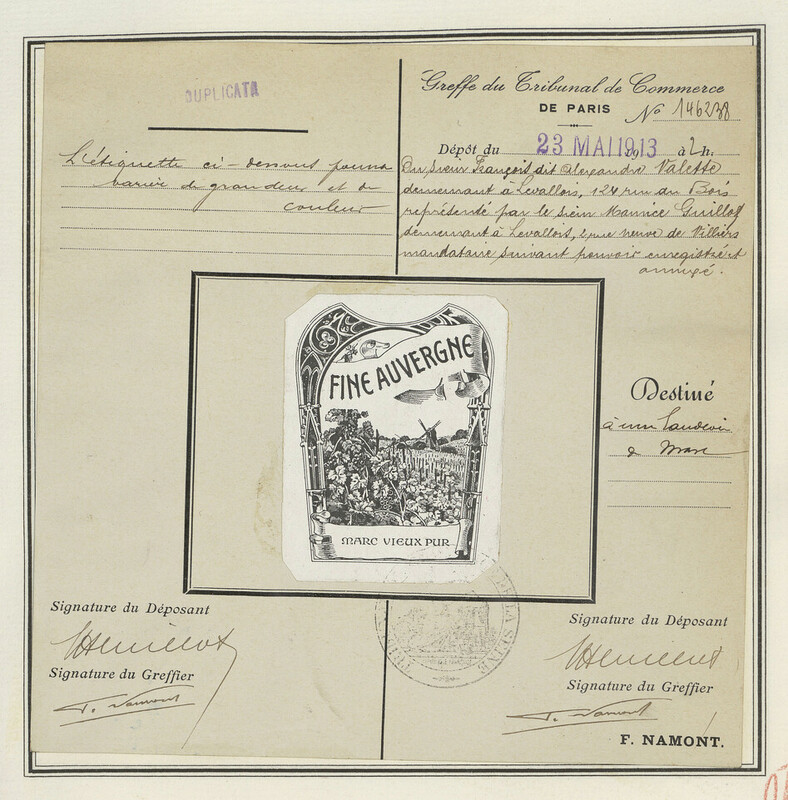 DUPLICATA
L'étiquette ci-dessous pourra
varier de grandeur et de
couleur
Greffe du Tribunal de Commerce
DE PARIS
No 146238
Dépôt du 23 MAI 1913 191 à 2 h.
Du sieur François dit Alexandre Valette
demeurant à Levallois, 124 rue du Bois
représenté par le sieur Maurice Guillot
demeurant à Levallois, 2 rue neuve de Villiers
mandataire suivant pouvoir enregistré et
annexé.
FINE AUVERGNE
MARC VIEUX PUR
Destiné
à une
de Marc
DE LA SEINE
Signature du Déposant
Signature du Greffier
F. Namont
Signature du Déposant
Signature du Greffier
F. Namont
F. NAMONT.